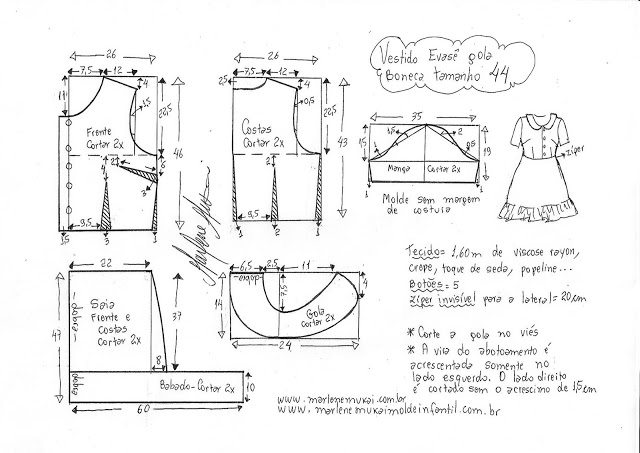 Vestido Evasê gola
Boneca tamanho 44
26
7,5 12
4
11
1,5
22,5
Frente
Cortar 2x
46
2
4
2
6
3
9,5
1,5 3 1
26
7,5 12
2,5
4
0,5
22,5
Costas
Cortar 2x
43
2
9,5
1 2 1
35
15
1,5
2
0,5
19
Manga Cortar 2x
1 1
Molde sem margem
de costura
zíper
22
Saia
Frente e
Costas
Cortar 2x
-dobra-
47
37
8
dobra
Babado-Cortar 2x
10
60
6,5 2,5 11
-dobra-
7,5
4
14
Gola
cortar 2x
24
Marlene Mukai
Tecido= 1,60m de viscose rayon,
crepe, toque de seda, popeline...
Botões= 5
Zíper invisível para a lateral= 20cm
* Corte a gola no viés
* A vira do abotoamento é
acrescentada somente no
lado esquerdo. O lado direito
é cortado sem o acrescimo de 1,5cm
www.marlenemukai.com.br
www.marlenemukaimoldeinfantil.com.br